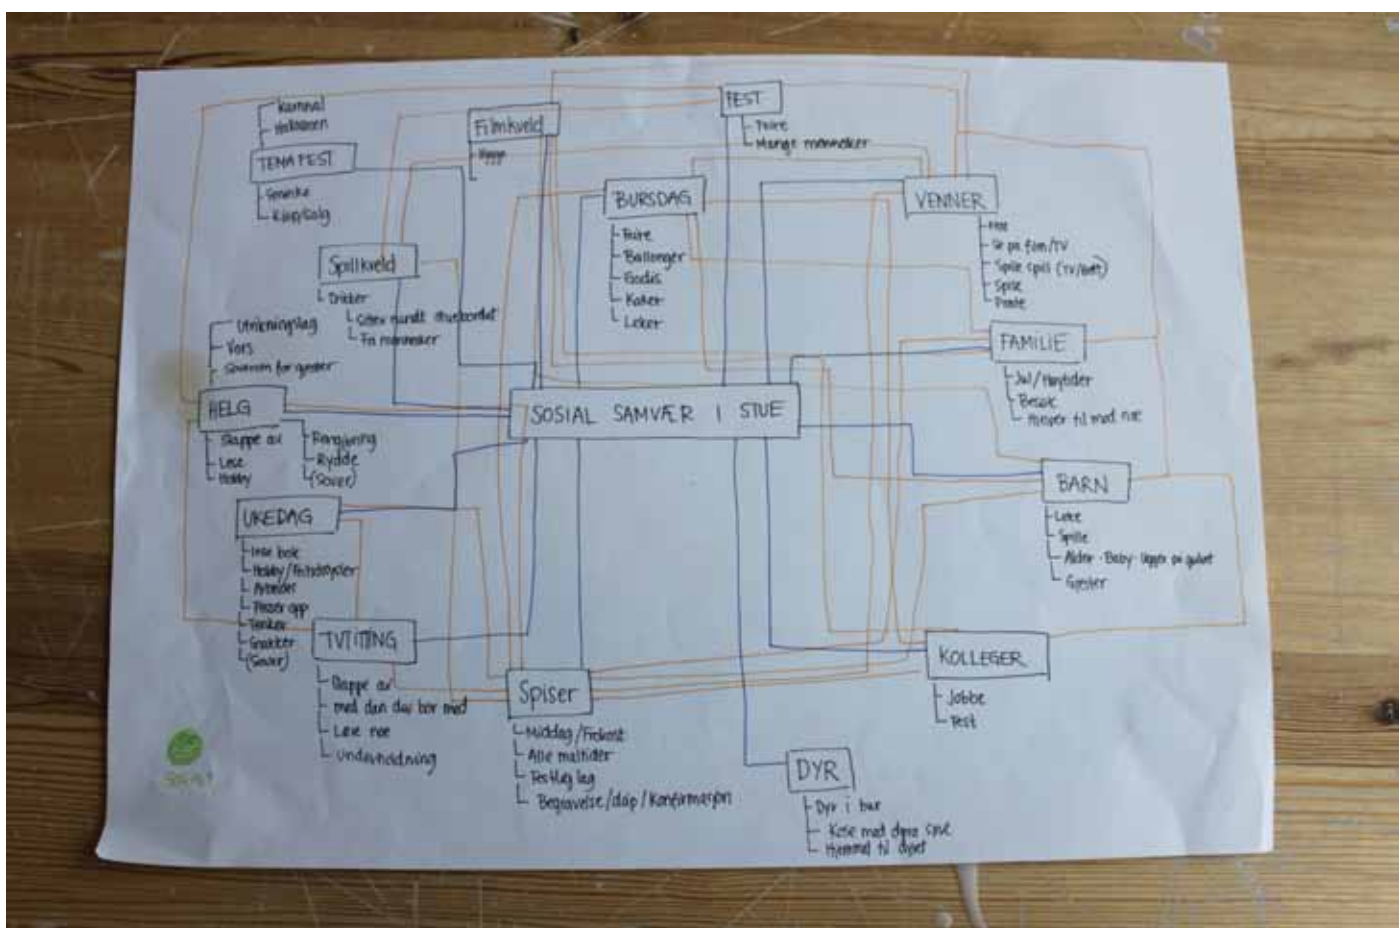 Karneval
Halloween
TEMA FEST
Sminke
Kjøp/salg
Filmkveld
Hygge
FEST
Feire
Mange mennesker
BURSDAG
Feire
Ballonger
Godis
Kaker
Leker
VENNER
Se på film/TV
Spille spill (TV/brett)
Spise
Prate
Spillkveld
Drikker
Sitter rundt stuebordet
Få mennesker
FAMILIE
Jul/Høytider
Besøk
Hører til med noe
Utkningslag
Vors
Soverom for gjester
HELG
Slappe av
Lese
Hobby
Rengjøring
Rydde
(Sover)
SOSIAL SAMVÆR I STUE
BARN
Leke
Spille
Alder - Baby - ligger på gulvet
Gjester
UKEDAG
Lese bok
Hobby/Fritidssysler
Arbeider
Passer opp
Tenker
Snakker
(Sover)
TVTITING
Slappe av
med den du bor med
Lære noe
Underholdning
Spiser
Middag/Frokost
Alle måltider
Festlig lag
Begravelse/dåp/Konfirmasjon
KOLLEGER
Jobbe
Fest
DYR
Dyr i bur
Kose med dyra sine
Hjemmet til dyret